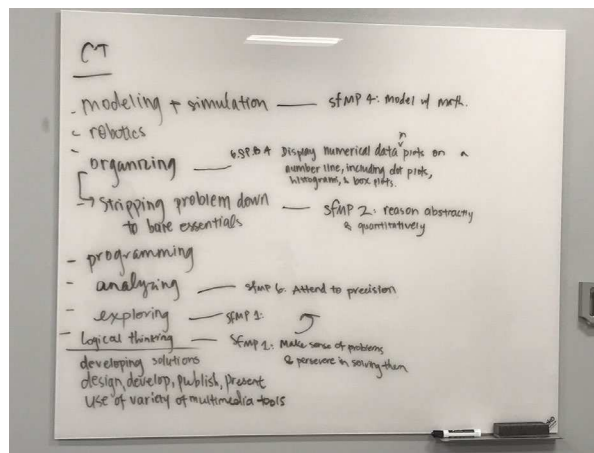 CT
- modeling + simulation — SfMP 4: model w/ math.
- robotics
- organizing — 6.SP.B.4 Display numerical data in plots on a
number line, including dot plots,
histograms, & box plots.
→ stripping problem down — SfMP 2: reason abstractly
to bare essentials & quantitatively
- programming
- analyzing — SfMP 6: Attend to precision
- exploring — SfMP 1:
- Logical thinking — SfMP 1: Make sense of problems
& persevere in solving them
developing solutions
design, develop, publish, present
use of variety of multimedia tools